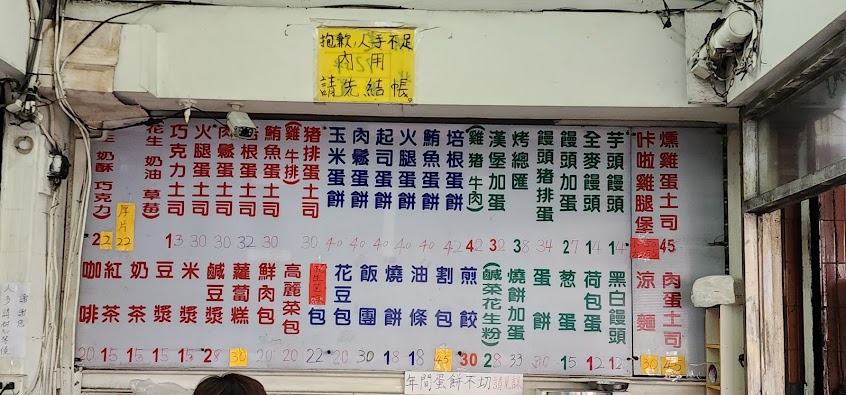 抱歉,人手不足
內用
請先結帳。
燻雞蛋土司 45
咔啦雞腿堡
芋頭饅頭 14
全麥饅頭 14
饅頭加蛋 27
饅頭豬排蛋 34
烤總匯 38
漢堡加蛋 32
(雞 豬 牛肉) 42
培根蛋餅 40
鮪魚蛋餅 40
火腿蛋餅 40
起司蛋餅 40
肉鬆蛋餅 40
玉米蛋餅 40
豬排蛋土司 30
(雞 牛排)
鮪魚蛋土司 30
培根蛋土司 32
肉鬆蛋土司 30
火腿蛋土司 30
巧克力土司 13
花生 奶油 草莓)
厚片 22
奶酥 巧克力) 22
肉蛋土司 45
涼麵 30
黑白饅頭 12
荷包蛋 12
蔥蛋 15
蛋餅 30
燒餅加蛋 33
(鹹菜花生粉) 28
煎餃 30
割包 45
油條 18
燒餅 18
飯團 30
花豆包 20
包 22
高麗菜包 20
鮮肉包 20
蘿蔔糕 30
鹹豆漿 28
米漿 15
豆漿 15
奶茶 15
紅茶 15
咖啡 20
年間蛋餅不切